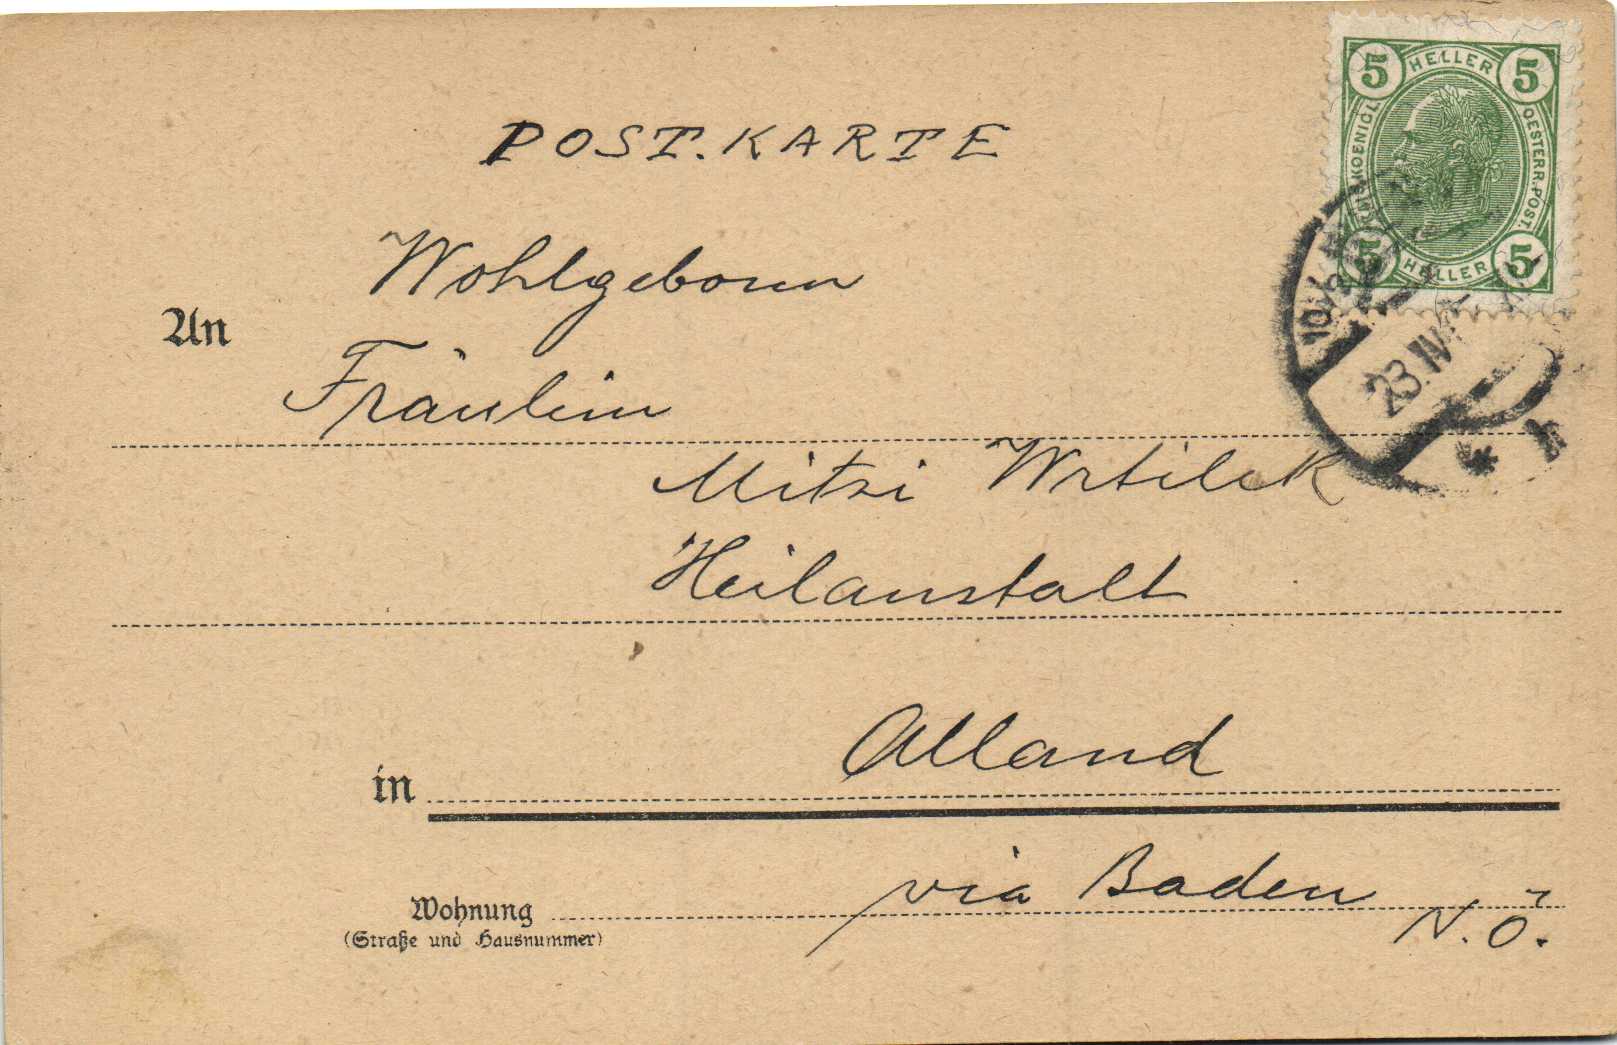 POST.KARTE
5 HELLER 5
KAIS. KOENIGL. OESTERR. POST.
5 HELLER 5
23.IV
Wohlgeboren
An
Fräulein
Mitzi Wrtilek
Heilanstalt
in Alland
via Baden
N.Ö.
Wohnung
(Straße und Hausnummer)